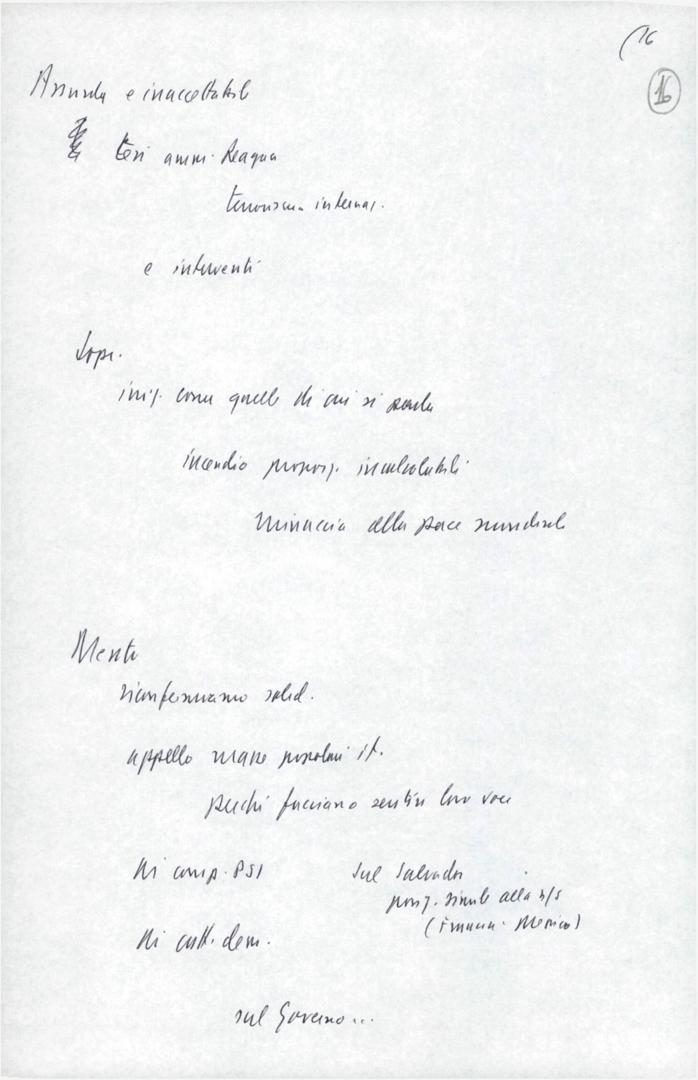 (16
16
Assurda e inaccettabile
tesi ammi. Reagan
terrorismo internaz.
e interventi
Sopr.
iniz. come quelle di cui si parla
incendio proporz. incalcolabili
Minaccia alla pace mondiale
Mentre
riconfermiamo solid.
appello masse popolari it.
perché facciano sentire loro voce
Ai comp. PSI
sul Salvador
posiz. simile alla n/s
(Francia - Messico)
Ai catt. dem.
sul Governo...